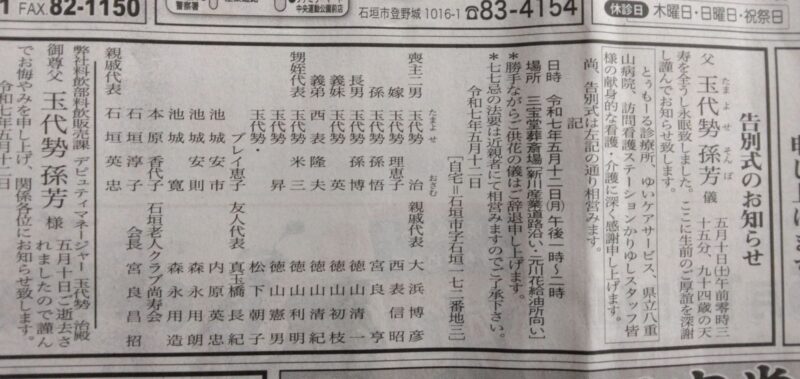 1 FAX 82-1150
警察署
中央運動公園前店
石垣市登野城 1016-1
83-4154
休診日 木曜日・日曜日・祝祭日
告別式のお知らせ
父 玉代勢 孫芳 儀
たまよせ そんぽ
五月十日(土)午前零時三
十五分、九十四歳の天
寿を全うし永眠致しました。ここに生前のご厚誼を深謝
し謹んでお知らせ致します。
とぅもーる診療所、ゆいケアサービス、県立八重
山病院、訪問看護ステーションかりゆしスタッフ皆
様の献身的な看護・介護に深く感謝申し上げます。
尚、告別式は左記の通り相営みます。
記
日時 令和七年五月十二日(月) 午後一時〜二時
場所 三宝堂葬斎場(新川産業道路沿い・元川花給油所向い)
*勝手ながらご供花の儀はご辞退申し上げます。
*七七忌の法要は近親者にて相営みますのでご了承下さい。
令和七年五月十二日
[自宅=石垣市字石垣一七二番地三]
喪主二男 玉代勢 治
たまよせ おさむ
嫁 玉代勢 理恵子
孫 玉代勢 孫悟
長男 玉代勢 孫博
義弟 西表 隆夫
義妹 玉代勢 英子
甥姪代表 玉代勢 米三
玉代勢 昇
玉代勢・
プレイ恵子
池城 安市
池城 安則
池城 寛
本原 香代子
石垣 淳子
親戚代表 石垣 英忠
親戚代表 大浜 博彦
西表 信昭
宮良 亨
徳山 清一
徳山 初枝
徳山 清紀
徳山 利明
徳山 憲男
松下 朝子
友人代表 真玉橋 長紀
内原 英忠
森永 用朗
森永 用造
石垣老人クラブ尚寿会
会長 宮良 昌招
弊社料飲部料飲販売課 デピュティマネージャー 玉代勢 治殿
御尊父 玉代勢 孫芳 様
五月十日ご逝去さ
れましたので謹ん
でお悔やみを申し上げ、関係各位にお知らせ致します。
令和七年五月十二日